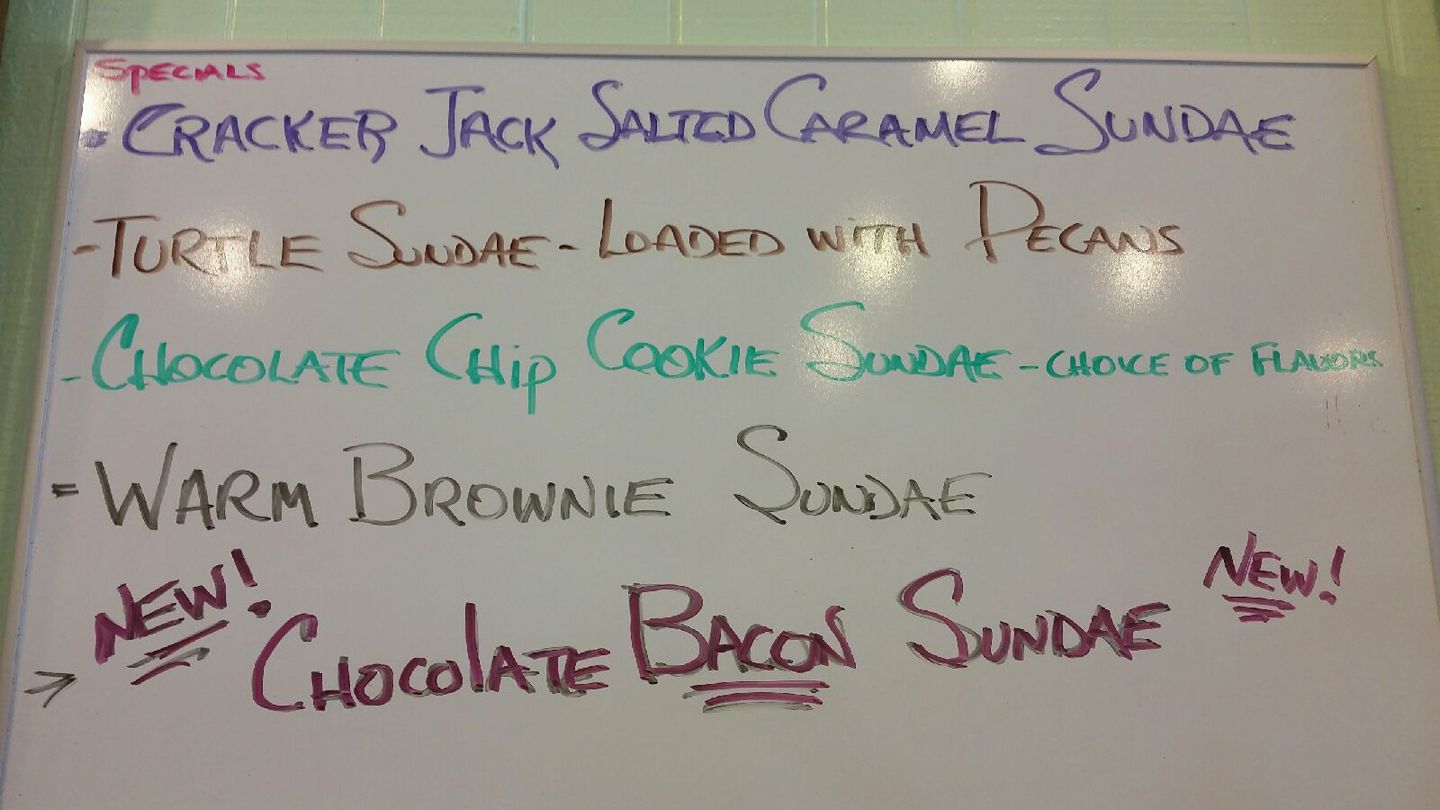 SPECIALS
- CRACKER JACK SALTED CARAMEL SUNDAE
- TURTLE SUNDAE - LOADED WITH PECANS
- CHOCOLATE CHIP COOKIE SUNDAE - CHOICE OF FLAVORS
- WARM BROWNIE SUNDAE
NEW! NEW!
→ CHOCOLATE BACON SUNDAE